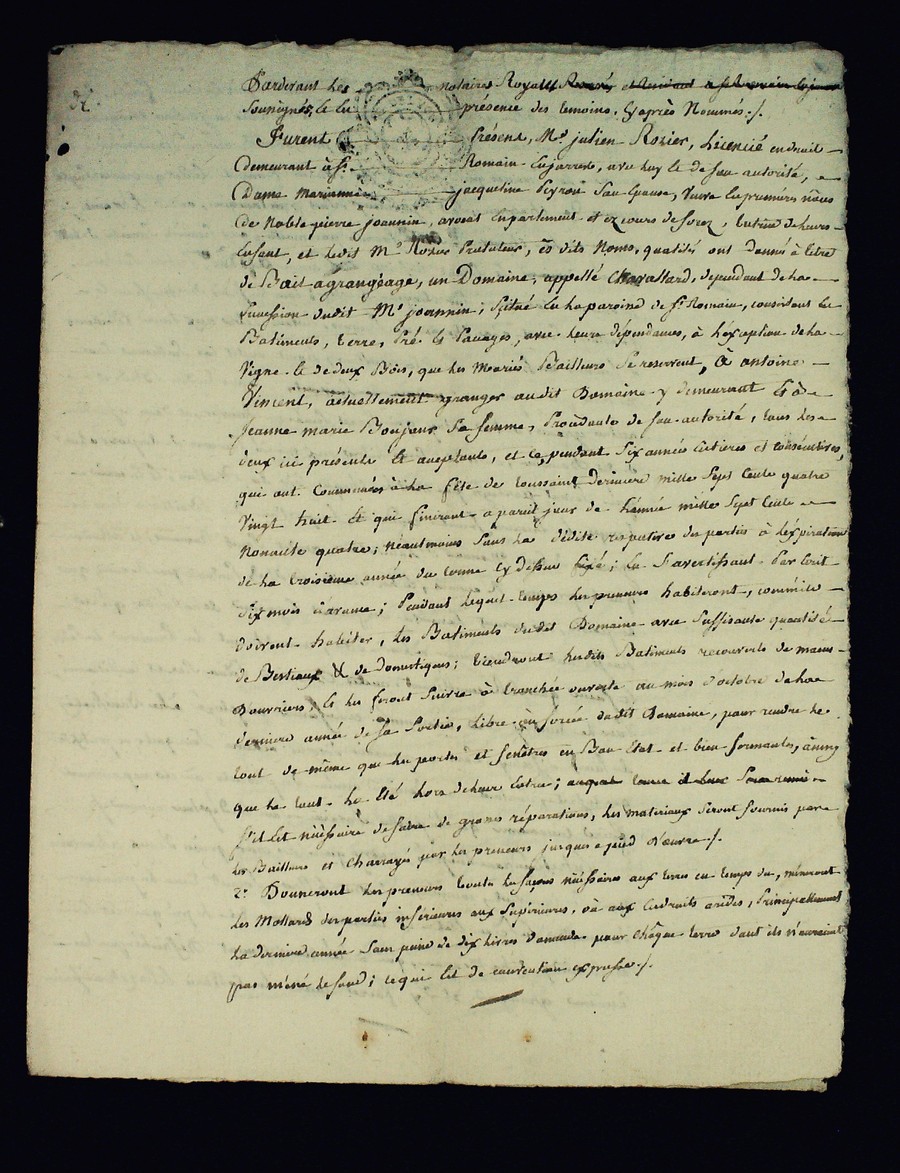 Pardevant les notaires Royaux
soussignés, et en présence des temoins Cyaprès Nommés ./.
Furent Présent, Mr. julien Rozier, Licencié en droit
demeurant à St. Romain en jarret, avec luy et de son autorité,
Dame Marianne jacqueline Peyron son Epouse, veuve en premiéres nôces
de Noble pierre joannin, avocat en parlement et ez cours de forez, tutrice de leurs
Enfant, et ledit Mr. Rozier Protuteur, ès dits Noms, qualités ont donné à titre
de Bail à grangéage, un Domaine, appellé Chavallard, dependant de la
succession dudit Mr joannin; Scitué en la paroisse de St. Romain, consistant en
Batiments, terre, Pré et Pacages, avec leurs dépendances, à l'éxception de la
vigne et de deux Bois, que les Mariés Bailleurs se reservent, à antoine
Vincent, actuellement granger audit Domaine y demeurant et à
Jeanne marie Bonjour sa femme, Procédante de son autorité, tous les
deux ici présents et acceptants, et ce, pendant Six années entieres et consécutives,
qui ont Commencées à la fête de toussaint derniere mille Sept Cents quatre
Vingt huit et qui finiront a pareil jour de l'année mille Sept Cents
Nonante quatre; néantmoins sous la dédite respective des parties à l'éxpiration
de la troisieme année du terme Cy dessus fixé; en s'avertissant Par écrit
Six mois d'avance; Pendant lequel temps les preneurs habiteront, comme ils
doivent habiter, les Batiments dudit Domaine avec Suffisante quantité
de Bestiaux & de Domestiques; tiendront lesdits Batiments recouverts de mains
d'ouvriers, et les feront suivre à tranchée ouverte au mois d'octobre de la
derniere année de la Sortie, libre ou forcée dudit Domaine, pour rendre le
tout de même que les portes et fenêtres en Bon Etat et bien fermantes, ainsy
que le tout le été lors de leur Entrée;
s'il Est nécessaire de faire de grosses réparations, les materiaux seront fournis par
les Bailleurs et Charroyés par les preneurs jusques a pied d'œuvre ./.
2°. Donneront les preneurs toutes les façons nécessaires aux terres en temps du, mineront
les Mollards des parties inférieures aux Supérieures, où aux Endroits arides, Principallement
la derniere année Sous peine de dix livres d'amende pour Châque terre dont ils n'auroient
pas miné le fond; ce qui Est de convention expresse ./.